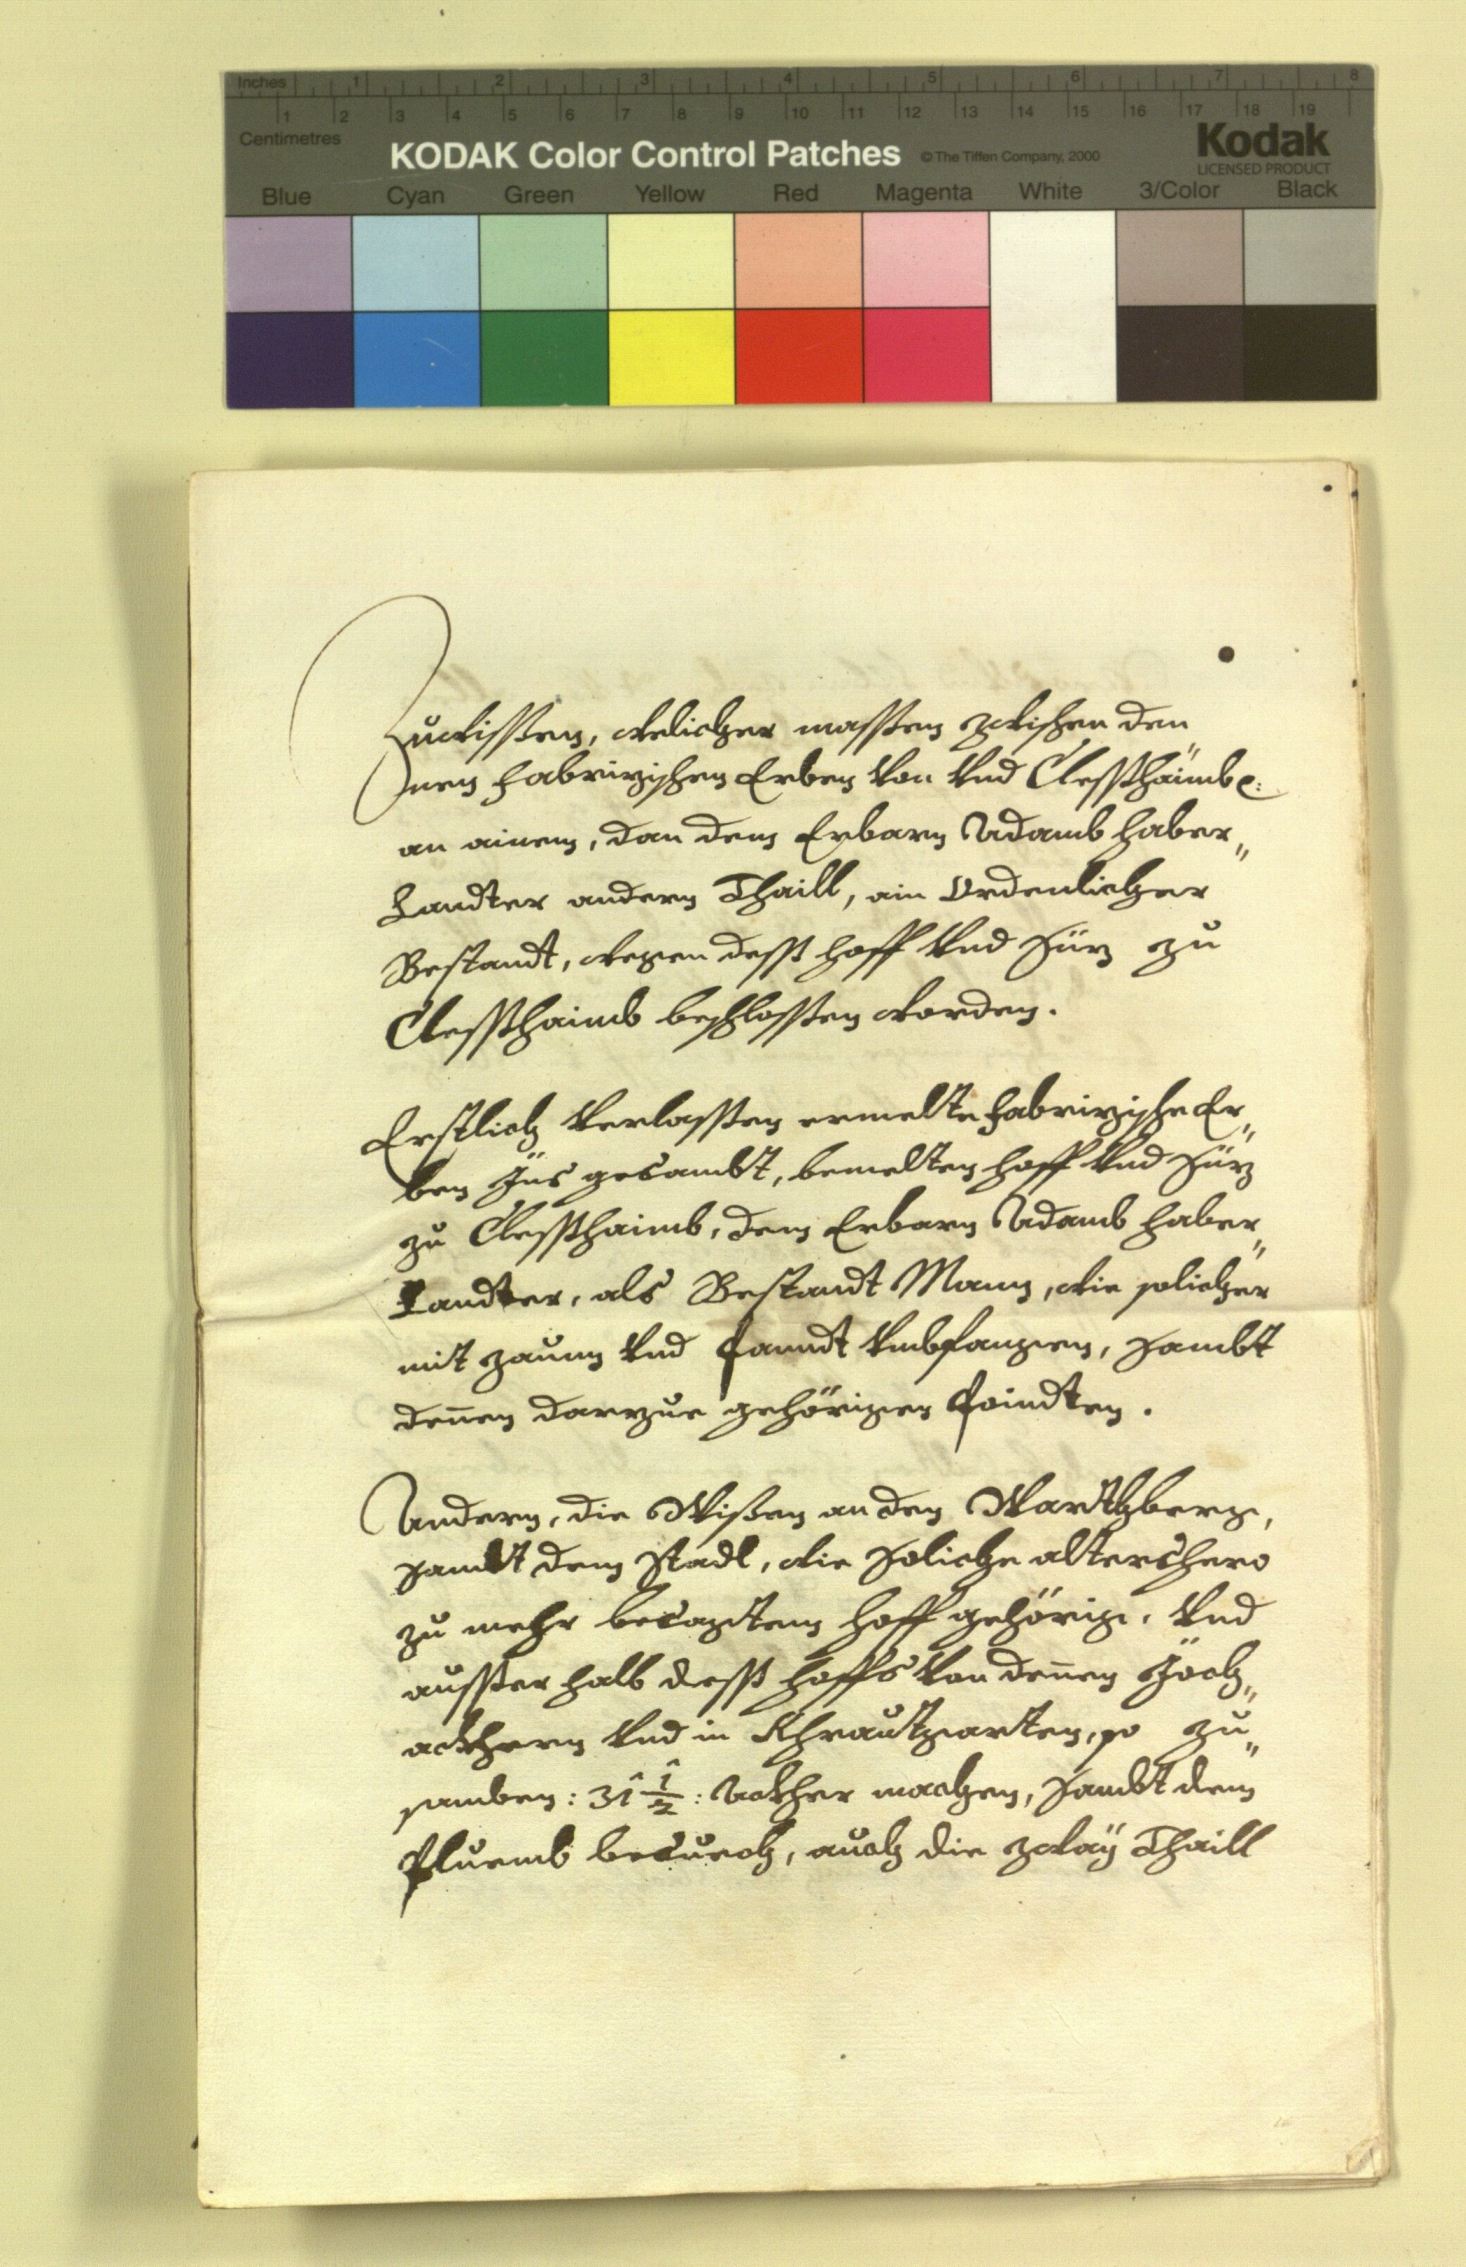 Inches 1 2 3 4 5 6 7 8
1 2 3 4 5 6 7 8 9 10 11 12 13 14 15 16 17 18 19
Centimetres
KODAK Color Control Patches © The Tiffen Company, 2000
Kodak
LICENSED PRODUCT
Blue Cyan Green Yellow Red Magenta White 3/Color Black
Zuwissen, welicher massen zwischen den„
nen Fabrizischen Erben von vnd Clesshaimb
an ainem, dan dem Erbarn Adamb Haber„
Landter andern Thaill, ain Ordenlicher
Bestandt, wegen dess Hoff vnd Süz zu
Clessshaimb beschlossen worden.
Erstlich verlassen ermelte Fabrizische Er„
ben Jns gesambt, bemelten Hoff vnd Süz
zu Clessshaimb, dem Erbarn Adamb Haber„
Landter, als Bestandt Mann, wie solicher
mit zaunn vnd Panndt vmbfangen, sambt
dennen darzue gehörigen Poindten.
Andern, die Wisen an den Wartberg,
sambt dem Stadl, wie soliche altershero
zu mehr besagtem Hoff gehörig. vnd
ausser halb dess Hoffs von dennen Jöch„
ackhern vnd in Khrautgarten, so zu„
samben: 31 1/2: Ackher machen, sambt dem
Pluemb besuech, auch die zway Thaill